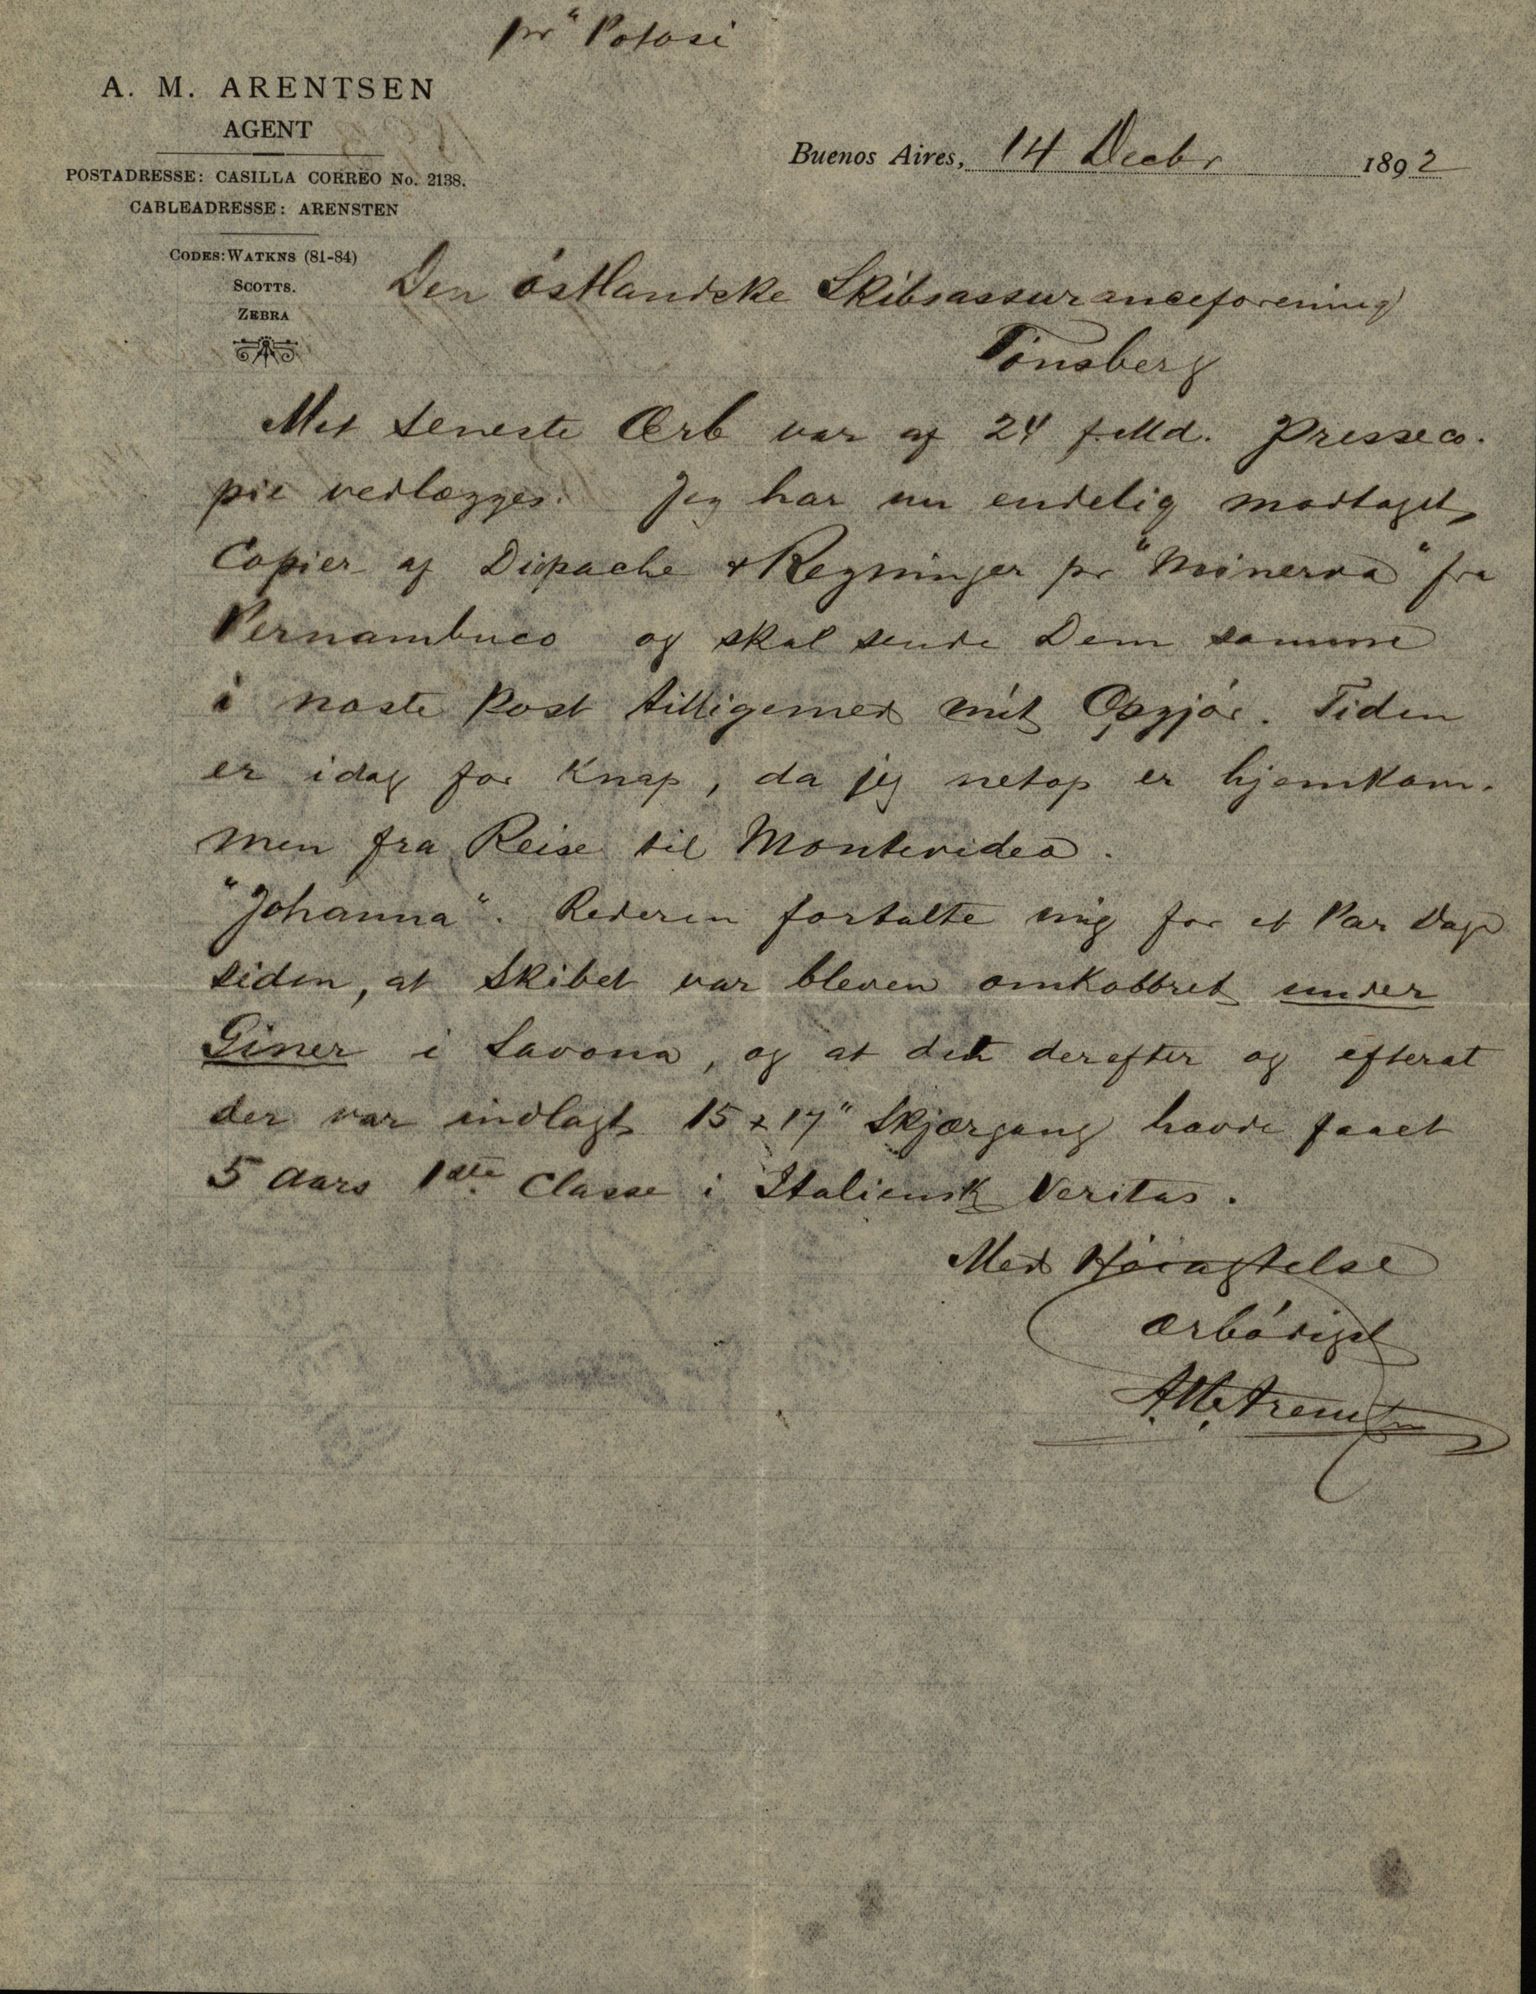 pr "Potosi
A. M. ARENTSEN
AGENT
POSTADRESSE: CASILLA CORREO No. 2138.
CABLEADRESSE: ARENSTEN
CODES: WATKNS (81-84)
SCOTTS.
ZEBRA
Buenos Aires, 14 Decbr 1892
Den östlandske Skibsassuranceforening
Tönsberg
Mit seneste Ærb var af 24 f. Md. Presseco-
pie vedlægges. Jeg har nu endelig modtaget
Copier af Dispache & Regninger pr "Minerva" fra
Pernambuco og skal sende Dem samme
i næste Post tilligemed mit Opgjör. Tiden
er idag for knap, da jeg netop er hjemkom-
men fra Reise til Montevideo.
"Johanna". Rederen fortalte mig for et Par Dage
siden, at Skibet var bleven omkobbret under
Giner i Savona, og at det derefter og efterat
der var indlagt 15 x 17" Skjærgang havde faaet
5 Aars 1ste Classe i Italiensk Veritas.
Med Höiagtelse
ærbödigst
A. M. Arentsen